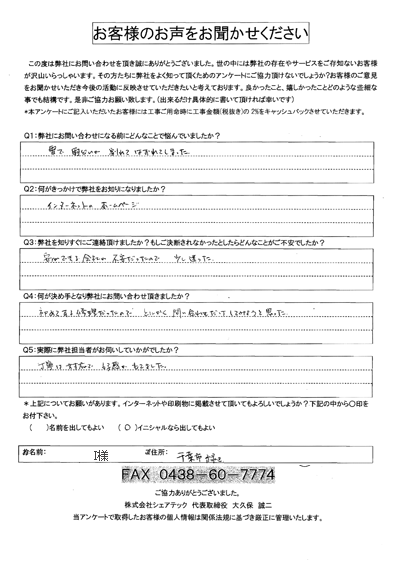 お客様のお声をお聞かせください
この度は弊社にお問い合わせを頂き誠にありがとうございました。世の中には弊社の存在やサービスをご存知ないお客様
が沢山いらっしゃいます。その方たちに弊社をよく知って頂くためのアンケートにご協力頂けないでしょうか?お客様のご意見
をお聞かせいただき今後の活動に反映させていただきたいと考えております。良かったこと、嬉しかったことどのような些細な
事でも結構です。是非ご協力お願い致します。(出来るだけ具体的に書いて頂ければ幸いです)
*本アンケートにご記入いただいたお客様には工事ご用命時に工事金額(税抜き)の2%をキャッシュバックさせていただきます。
Q1:弊社にお問い合わせになる前にどんなことで悩んでいましたか?
割れて はずれてしまった
Q2:何がきっかけで弊社をお知りになりましたか?
インターネットの ホームページ
Q3:弊社を知りすぐにご連絡頂けましたか?もしご決断されなかったとしたらどんなことがご不安でしたか?
安心できる会社か 不安だったので 少し迷った
Q4:何が決め手となり弊社にお問い合わせ頂きましたか?
初めてする修理だったので とにかく 問い合わせだけ してみようと思った
Q5:実際に弊社担当者がお伺いしていかがでしたか?
丁寧な方で 好感がもてました。
*上記についてお願いがあります。インターネットや印刷物に掲載させて頂いてもよろしいでしょうか?下記の中から〇印を
お付下さい。
( )名前を出してもよい (〇)イニシャルなら出してもよい
お名前: I様 ご住所: 千葉市緑区
FAX 0438-60-7774
ご協力ありがとうございました。
株式会社シェアテック 代表取締役 大久保 誠二
当アンケートで取得したお客様の個人情報は関係法規に基づき厳正に管理いたします。